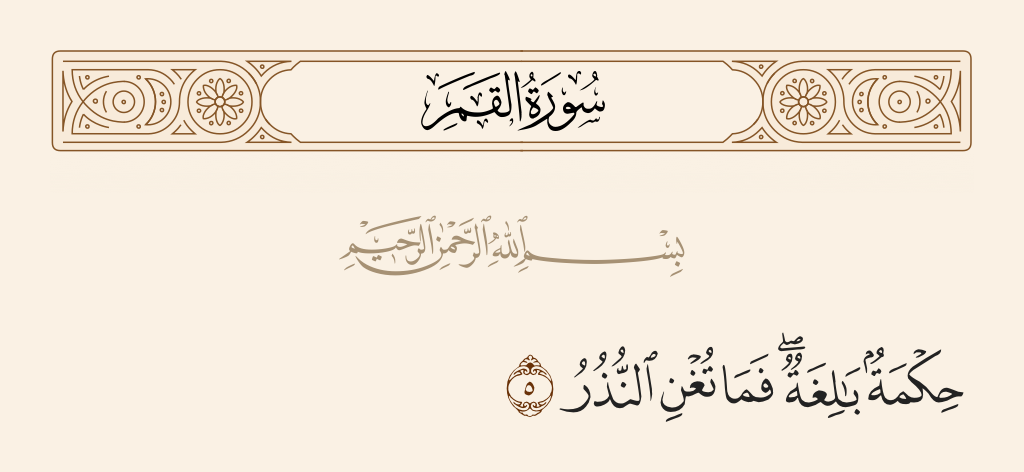 سُورَةُ القَمَرِ
بِسْمِ ٱللَّهِ ٱلرَّحْمَٰنِ ٱلرَّحِيمِ
حِكْمَةٌۢ بَٰلِغَةٌۖ فَمَا تُغْنِ ٱلنُّذُرُ ٥